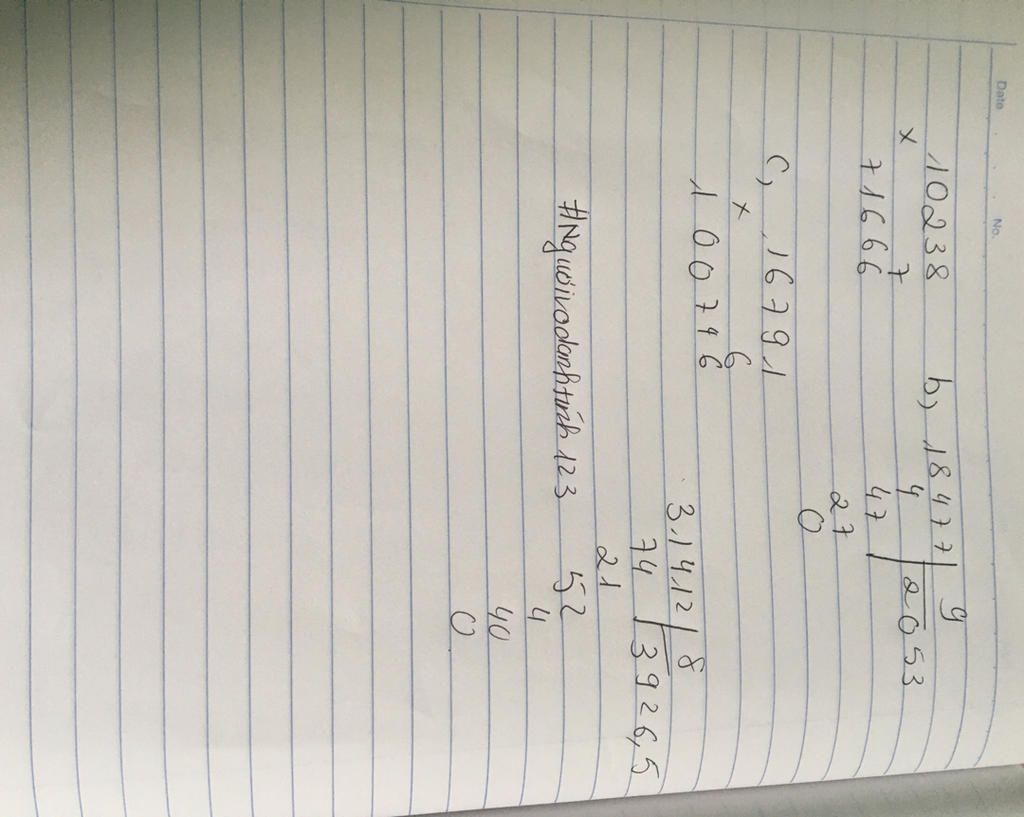 Date No.
10238 b, 18477 9
x 7 4 2053
71666 47
27
0
c, 16791
x 6
100746 31412 8
74 3926,5
21
#Nguoivodanhtinh123 52
4
40
0